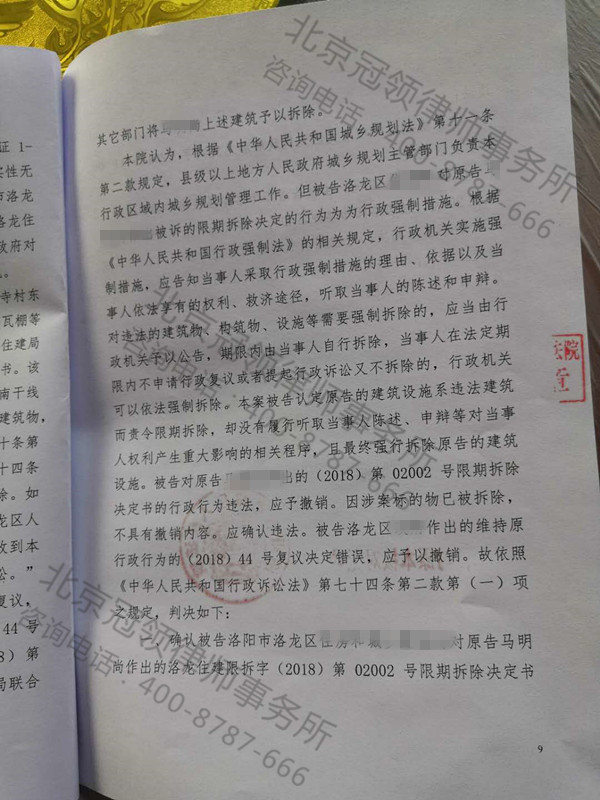 证 1-
实性无
市洛龙
洛龙住
政府对
寺村东
瓦棚等
住建局
书。该
南干线
建筑物，
十条第
十四条
除。如
龙区人
收到本
讼。”
复议，
44 号
8）第
局联合
其它部门将马 上述建筑予以拆除。
本院认为，根据《中华人民共和国城乡规划法》第十一条
第二款规定，县级以上地方人民政府城乡规划主管部门负责本
行政区域内城乡规划管理工作。但被告洛龙区 对原告
被诉的限期拆除决定的行为为为行政强制措施。根据
《中华人民共和国行政强制法》的相关规定，行政机关实施强
制措施，应告知当事人采取行政强制措施的理由、依据以及当
事人依法享有的权利、救济途径，听取当事人的陈述和申辩。
对违法的建筑物、构筑物、设施等需要强制拆除的，应当由行
政机关予以公告，期限内由当事人自行拆除，当事人在法定期
限内不申请行政复议或者提起行政诉讼又不拆除的，行政机关
可以依法强制拆除。本案被告认定原告的建筑设施系违法建筑
而责令限期拆除，却没有履行听取当事人陈述、申辩等对当事
人权利产生重大影响的相关程序，且最终强行拆除原告的建筑
设施。被告对原告马 出的（2018）第 02002 号限期拆除
决定书的行政行为违法，应予撤销。因涉案标的物已被拆除，
不具有撤销内容。应确认违法。被告洛龙区 作出的维持原
行政行为的（2018）44 号复议决定错误，应予以撤销。故依照
《中华人民共和国行政诉讼法》第七十四条第二款第（一）项
之规定，判决如下：
一、确认被告洛阳市洛龙区住房和城 对原告马明
尚作出的洛龙住建限拆字（2018）第 02002 号限期拆除决定书
9
北京冠领律师事务所
咨询电话：400-8787-666
北京冠领律师事务所
咨询电话：400-8787-666
北京冠领律师事务所
咨询电话：400-8787-666